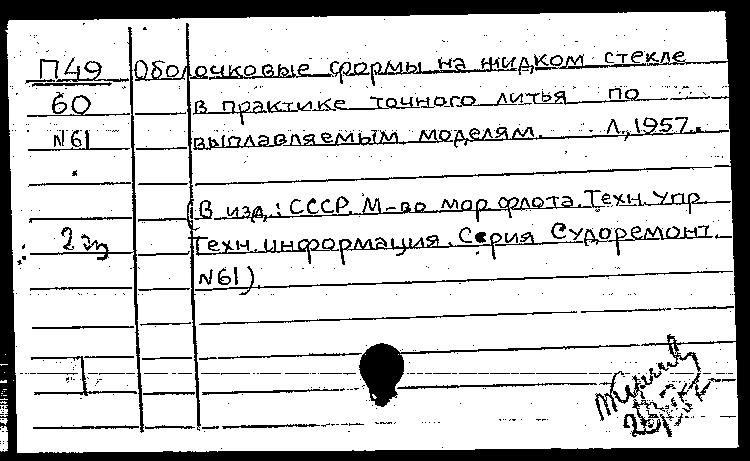 П49 Оболочковые формы на жидком стекле
60 в практике точного литья по
N61 выплавляемым моделям. Л, 1957.
(В изд.: СССР. М-во мор. флота. Техн. упр.
2 эк Техн. информация. Серия Судоремонт.
N61).